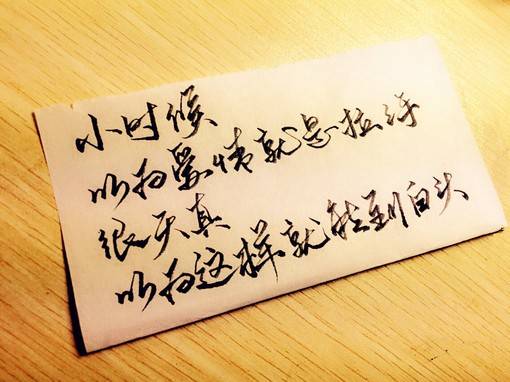 小时候
以为爱情就是拉手
很天真
以为这样就能到白头